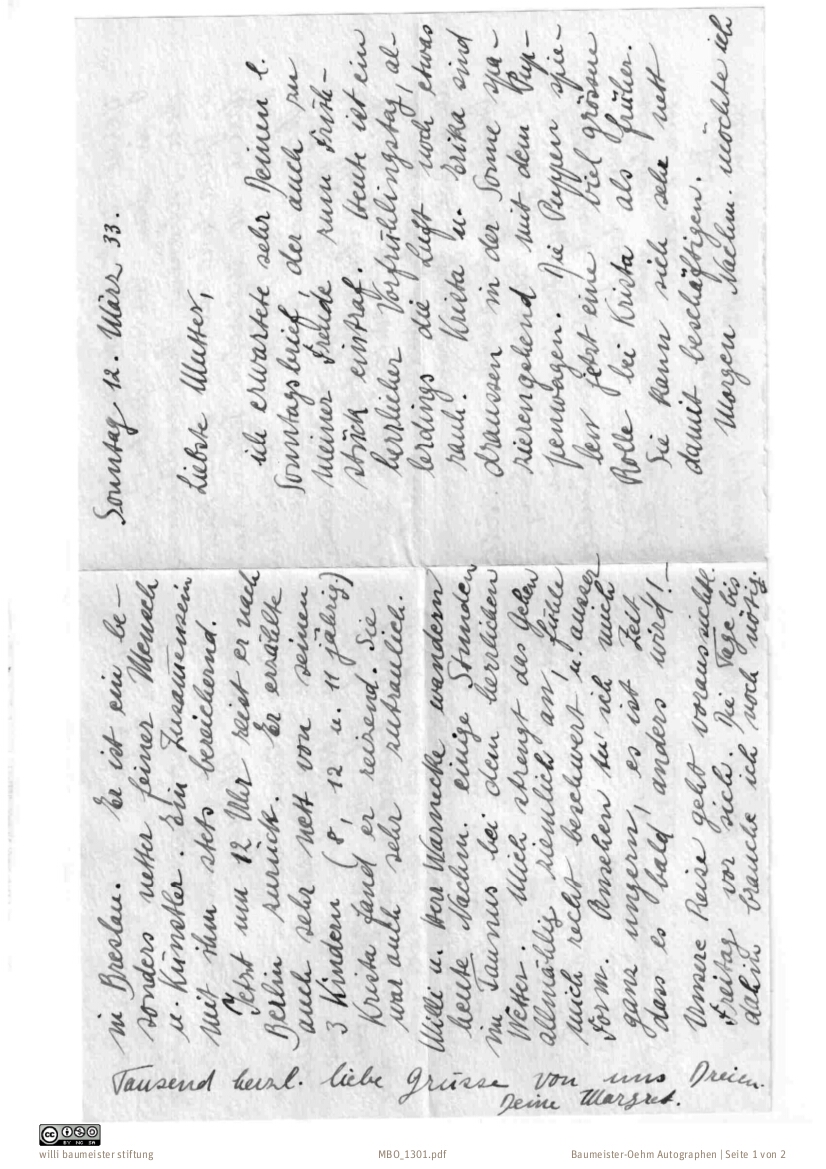 Sonntag 12. März 33.
Liebste Mutter,
ich erwartete sehr Deinen l.
Sonntagsbrief, der auch zu
meiner Freude zum Früh-
stück eintraf. Heute ist ein
herrlicher Vorfrühlingstag, al-
lerdings die Luft noch etwas
rauh. Krista u. Erika sind
draussen in der Sonne spa-
zierengehend mit dem Pup-
penwagen. Die Puppen spie-
len jetzt eine viel grössere
Rolle bei Krista als früher.
Sie kann sich sehr nett
damit beschäftigen.
Morgen Nachm. möchte ich
in Breslau. Er ist ein be-
sonders netter feiner Mensch
u. Künstler. Ein Zusammensein
mit ihm stets bereichernd.
Jetzt um 12 Uhr reist er nach
Berlin zurück. Er erzählte
auch sehr nett von seinen
3 Kindern (8, 12 u. 11 jährig)
Krista fand er reizend. Sie
war auch sehr zutraulich.
Willi u. Herr Warnecke wandern
heute Nachm. einige Stunden
im Taunus bei dem herrlichen
Wetter. Mich strengt das Gehen
allmählig ziemlich an, fühle
mich recht beschwert u. ausser
Form. Ansehen tu' ich mich
ganz ungern, es ist Zeit
dass es bald anders wird!—
Unsere Reise geht voraussichtl.
Freitag vor sich. Die Tage bis
dahin brauche ich noch nötig.
Tausend herzl. liebe Grüsse von uns Dreien.
Deine Margret.
willi baumeister stiftung
MBO_1301.pdf
Baumeister-Oehm Autographen | Seite 1 von 2
CC BY NC SA